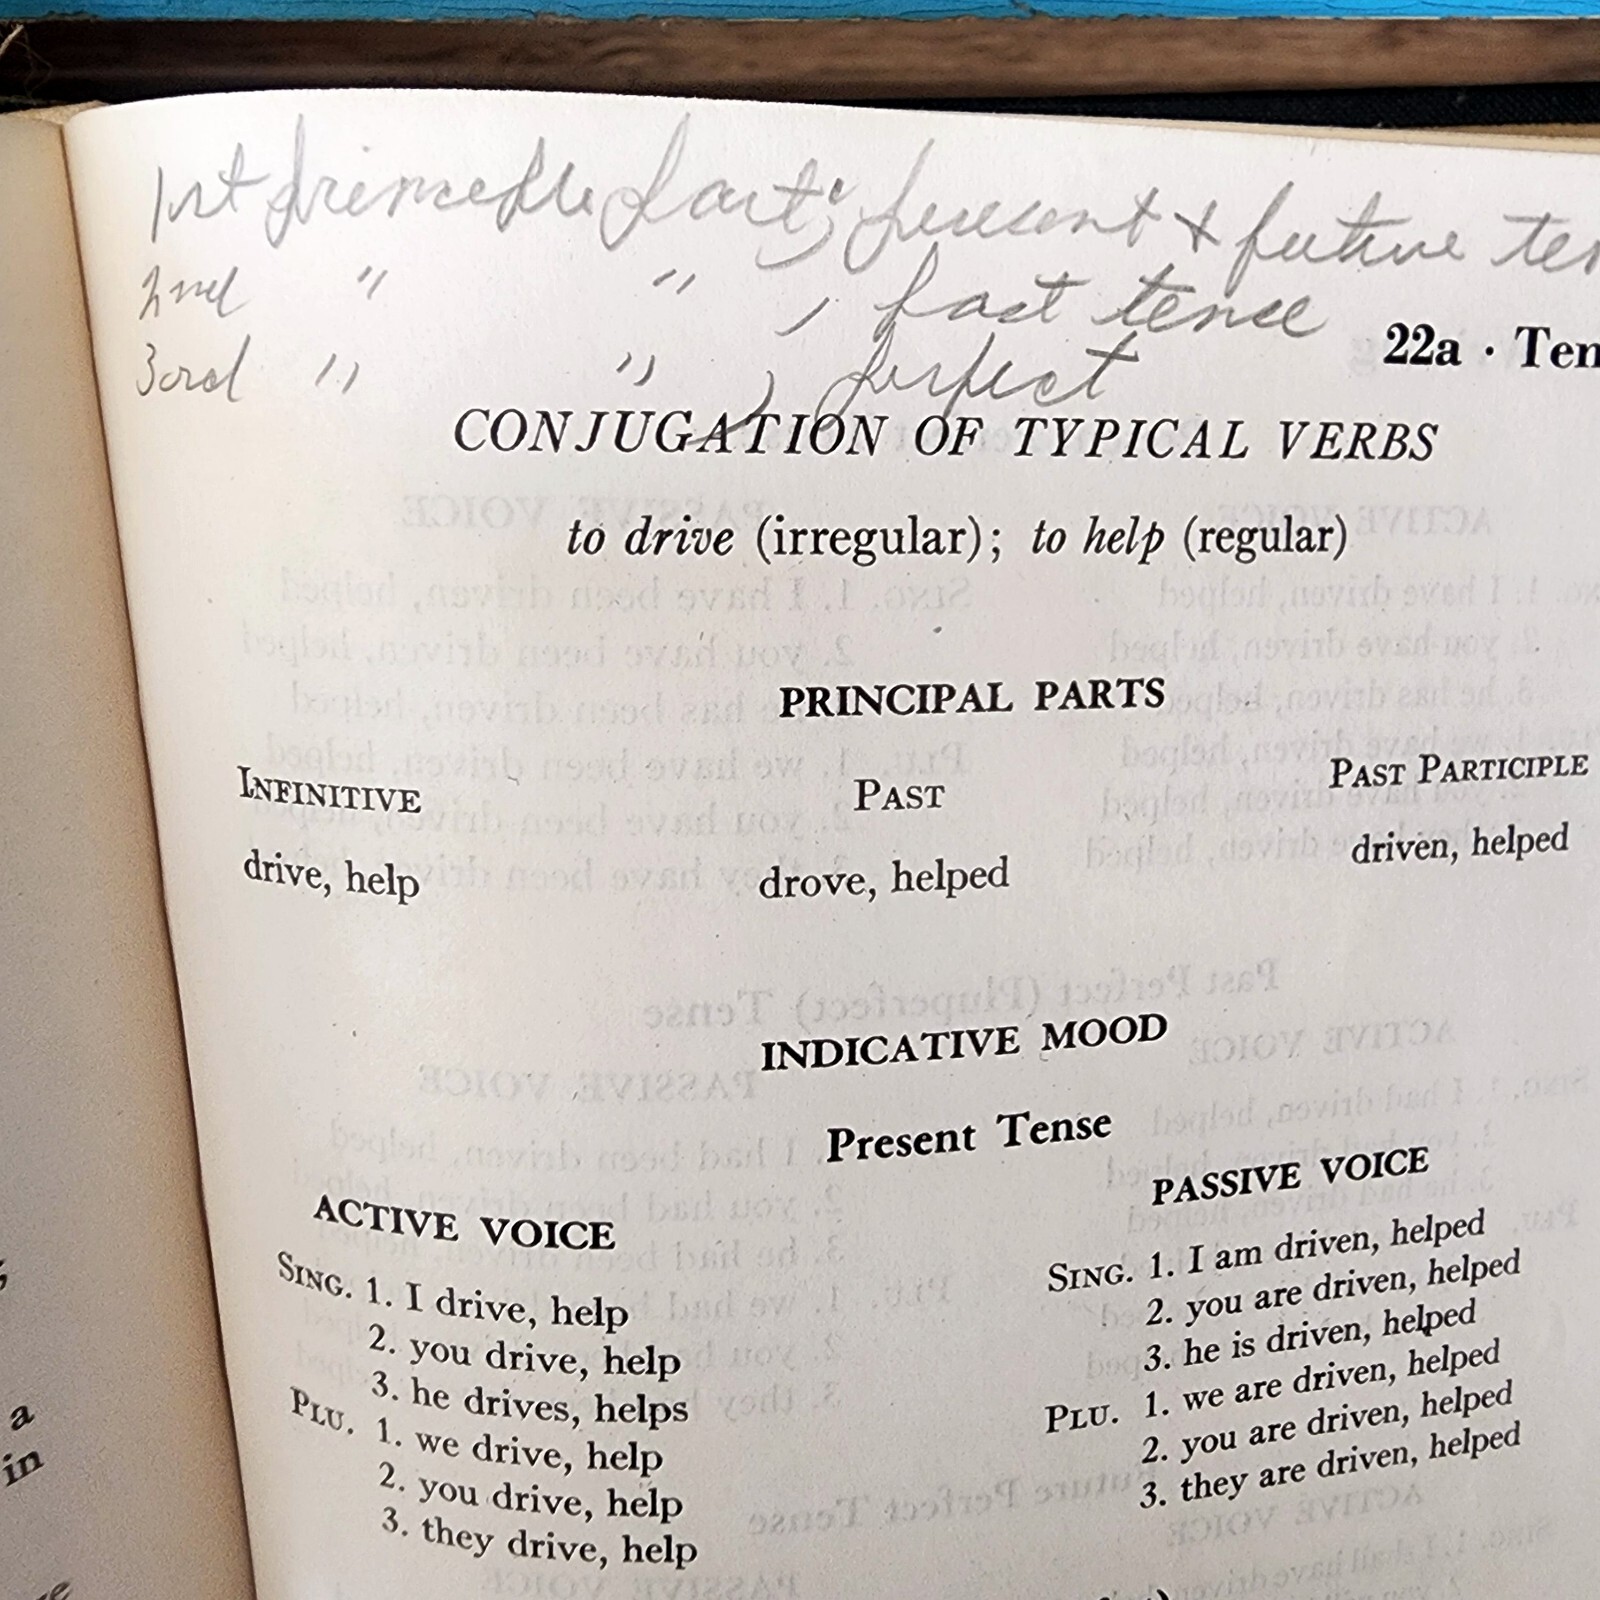 1st principle part, present & future ten
2nd " " , past tense
3rd " " , perfect
22a · Ten
CONJUGATION OF TYPICAL VERBS
to drive (irregular); to help (regular)
PRINCIPAL PARTS
INFINITIVE PAST PAST PARTICIPLE
drive, help drove, helped driven, helped
INDICATIVE MOOD
Present Tense
ACTIVE VOICE PASSIVE VOICE
SING. 1. I drive, help SING. 1. I am driven, helped
2. you drive, help 2. you are driven, helped
3. he drives, helps 3. he is driven, helped
PLU. 1. we drive, help PLU. 1. we are driven, helped
2. you drive, help 2. you are driven, helped
3. they drive, help 3. they are driven, helped
a
in